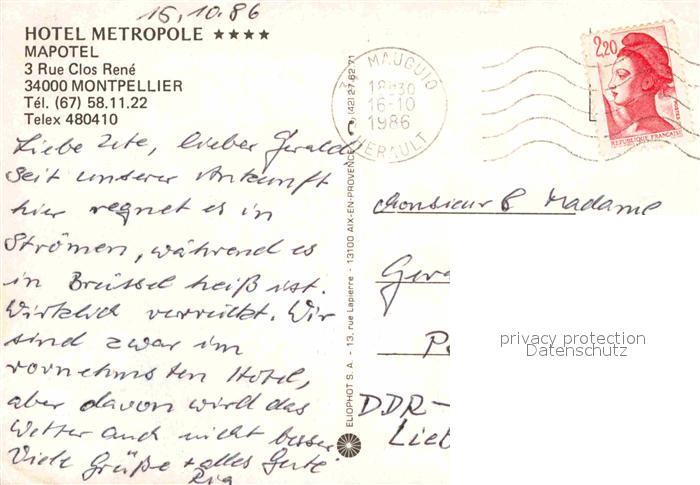 15.10.86
HOTEL METROPOLE ★★★★
MAPOTEL
3 Rue Clos René
34000 MONTPELLIER
Tél. (67) 58.11.22
Telex 480410
Liebe Ute, lieber Gerald
Seit unserer Ankunft
hier regnet es in
Strömen, während es
in Brüssel heiß ist.
Wirklich verrückt. Wir
sind zwar im
vornehmsten Hotel,
aber davon wird das
Wetter auch nicht besser
Viele Grüße + alles Gute
ELIOPHOT S.A. - 13, rue Lapierre - 13100 AIX-EN-PROVENCE (42) 27.62.71
MAUGUIO
18H30
16-10
1986
HERAULT
2,20
POSTES
REPUBLIQUE FRANÇAISE
Monsieur & Madame
Gera
DDR-
Lieb
privacy protection
Datenschutz